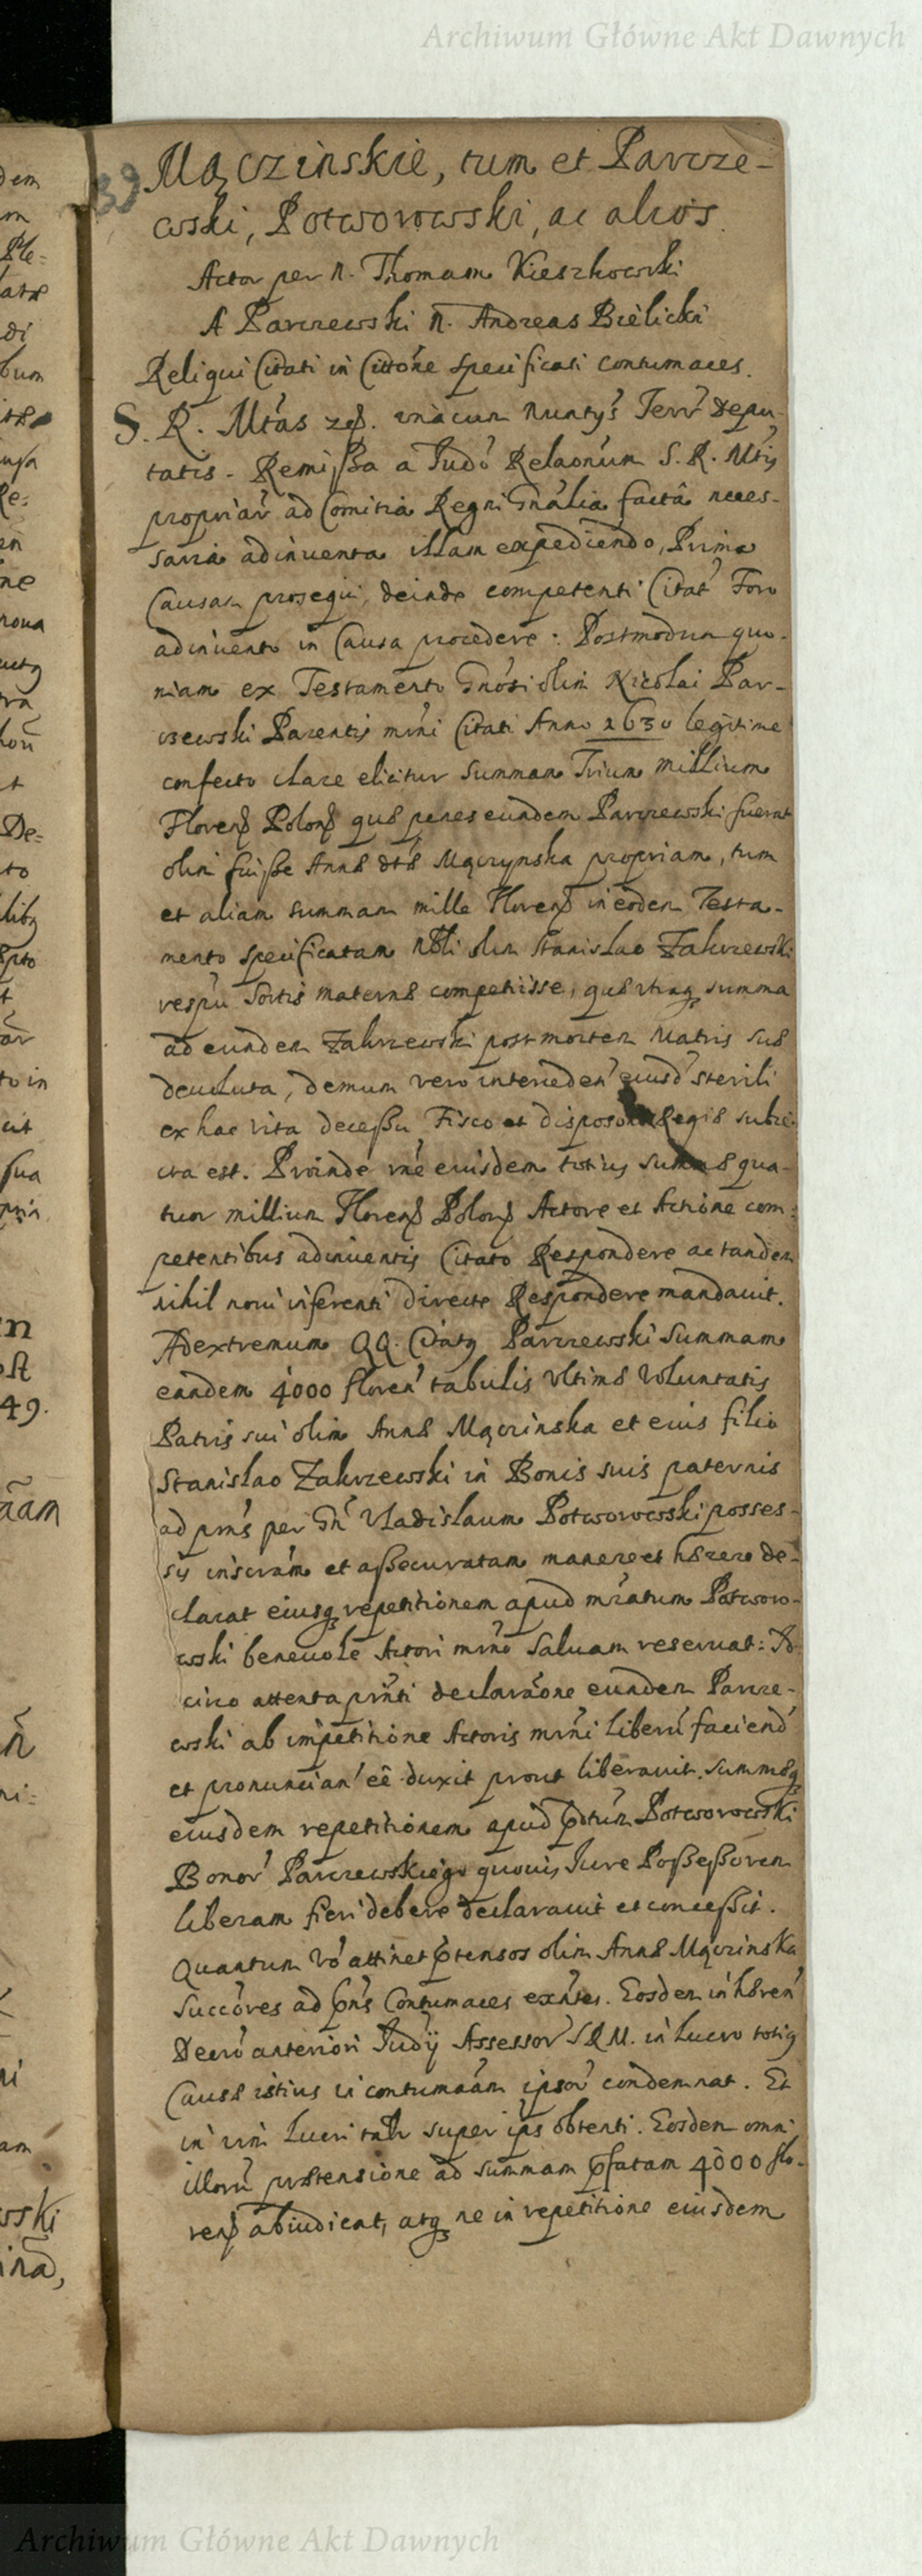 Archiwum Główne Akt Dawnych
39
Mączinskie, tum et Parcze-
wski, Potworowski, ac alios.
Actor per N. Thomam Kieszkowski
A Parczewski N. Andreas Bielicki
Reliqui Citati in Cittõne specificati contumaces.
S. R. Mtas unacum Nuntys Terr Depu-
tatis - Remissa a Judo Relaonum S. R. Mtis
propriar ad Comitia Regni Gnalia facta neces-
saria adinventa illam expediendo, Prima
Causam prosequi, deinde competenti Citat Foro
adinvento in Causa procedere: Postmodum quo-
niam ex Testamento Gnosi olim Nicolai Par-
czewski Parentis mni Citati Anno 1630 legitime
confecto clare elicitur summam Trium millium
Floren Polon quæ penes eundem Parczewski fuerat
olim fuisse Annæ dtæ Mączynska propriam, tum
et aliam summam mille Floren in eodem Testa-
mento specificatam Nbli olim Stanislao Zakrzewski
respu Sortis maternæ competiisse, quæ utraq summa
ad eundem Zakrzewski post mortem Matris suæ
devoluta, demum vero intercedeñ eiusd sterili
ex hac vita decessu Fisco et disposoni Regiæ subie-
cta est. Proinde rne eiusdem totius summæ qua-
tuor millium Floren Polon Actore et Actione com-
petentibus adinventis Citato Respondere ac tandem
nihil novi inferenti directe Respondere mandavit.
Ad extremum QQ. Citatg Parczewski Summam
eandem 4000 floren tabulis ultimæ Voluntatis
Patris sui olim Annæ Mączinska et eius filio
Stanislao Zakrzewski in Bonis suis paternis
ad prns per Gn Vladislaum Potworowski posses-
sis inscram et assecuratam manere et hærere de-
clarat eiusq repetitionem apud mratum Potworo-
wski benevole Actori mrno salvam reservat: Id
circo attenta prnti declaraone eundem Parcze-
wski ab impetitione Actoris mrni liberu faciend
et pronuncian ee duxit prout liberavit. summæq
eiusdem repetitionem apud pdtum Potworowski
Bonor Parczewskiego quovis Jure Possessorem
liberam fieri debere declaravit et concessit.
Quantum vo attinet ptensos olim Annæ Mączinska
Succores ad pns Contumaces exntes. Eosdem inhæren
Decro anteriori Judy Assessor SRM. in lucro totig
Causæ istius ut contumacm ipsor condemnat. Et
in vim lucri talr super ips obtenti. Eosdem omni
illoru prætensione ad summam pfatam 4000 flo-
ren abiudicat, atq ne in repetitione eiusdem
Archiwum Główne Akt Dawnych